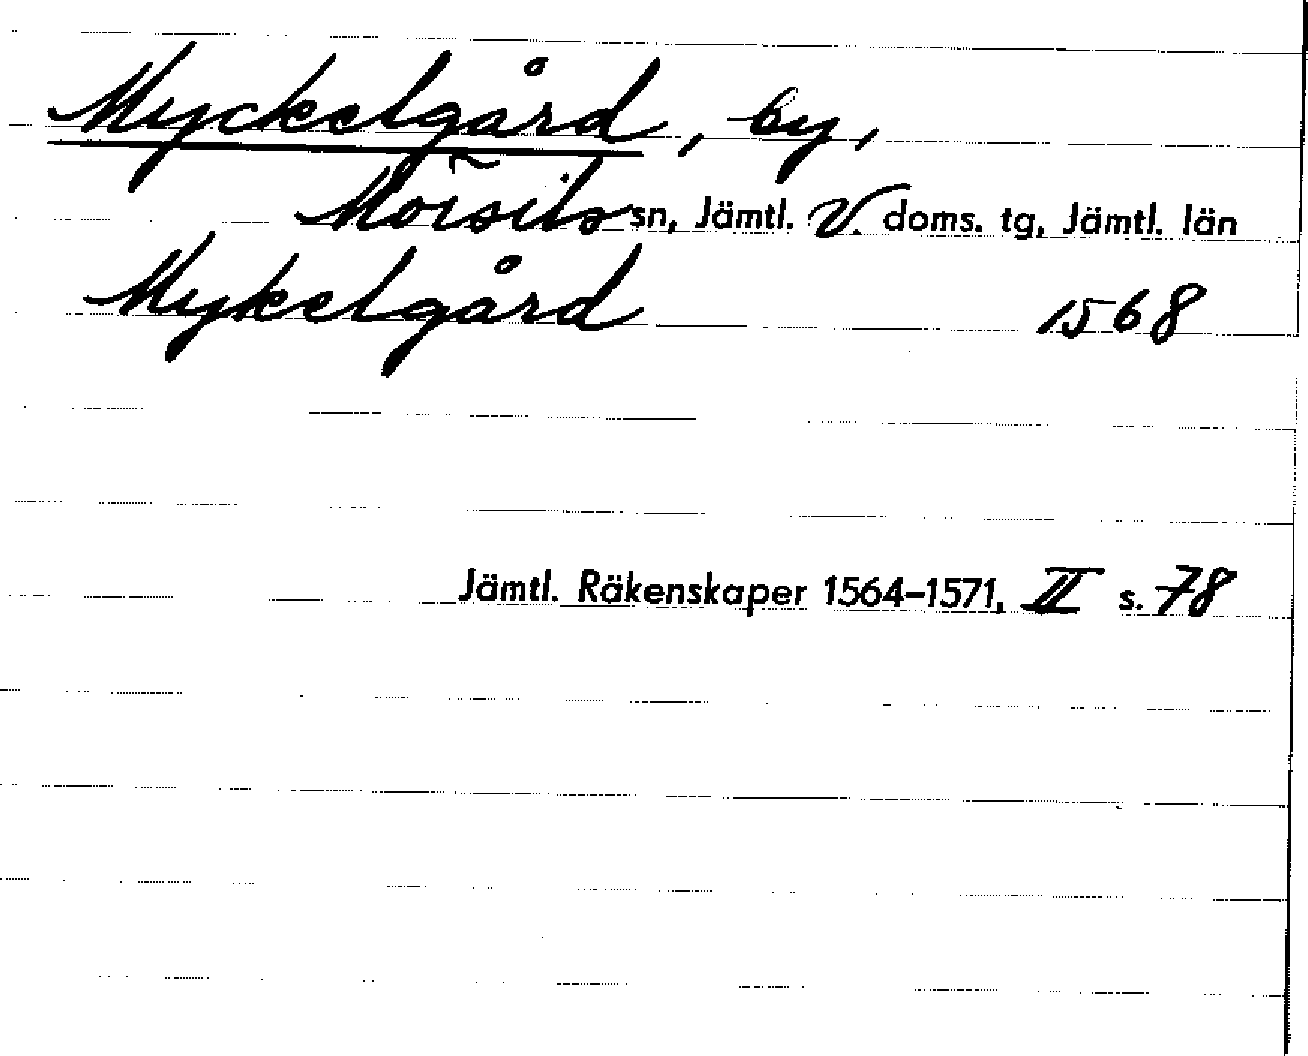 Myckelgård, by,
Mörsils sn, Jämtl. V. doms. tg, Jämtl. län
Mykelgård 1568
Jämtl. Räkenskaper 1564–1571, II s. 78